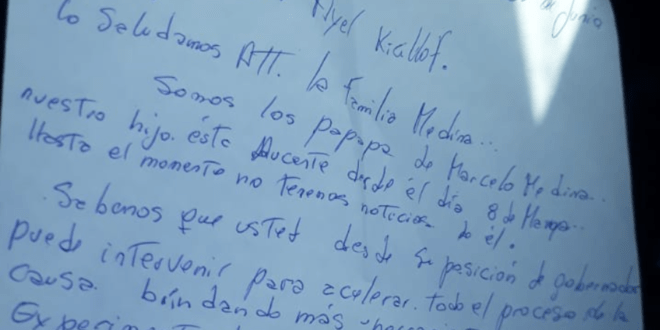 de Junio
Axel Kicillof.
lo Saludamos Att. la Familia Medina...
Somos los papapa de Marcelo Medina..
nuestro hijo. ésta Aucente desde él día 8 de Marzo..
Hasta el momento no tenemos noticias de él.
Sabemos que usted desde su posición de gobernador
puede intervenir para acelerar. todo el proceso de la
causa. brindando más